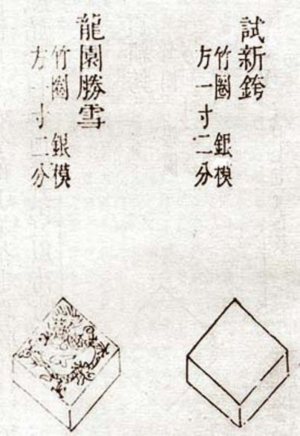 試新銙
竹圈 銀模
方一寸二分
龍園勝雪
竹圈 銀模
方一寸二分